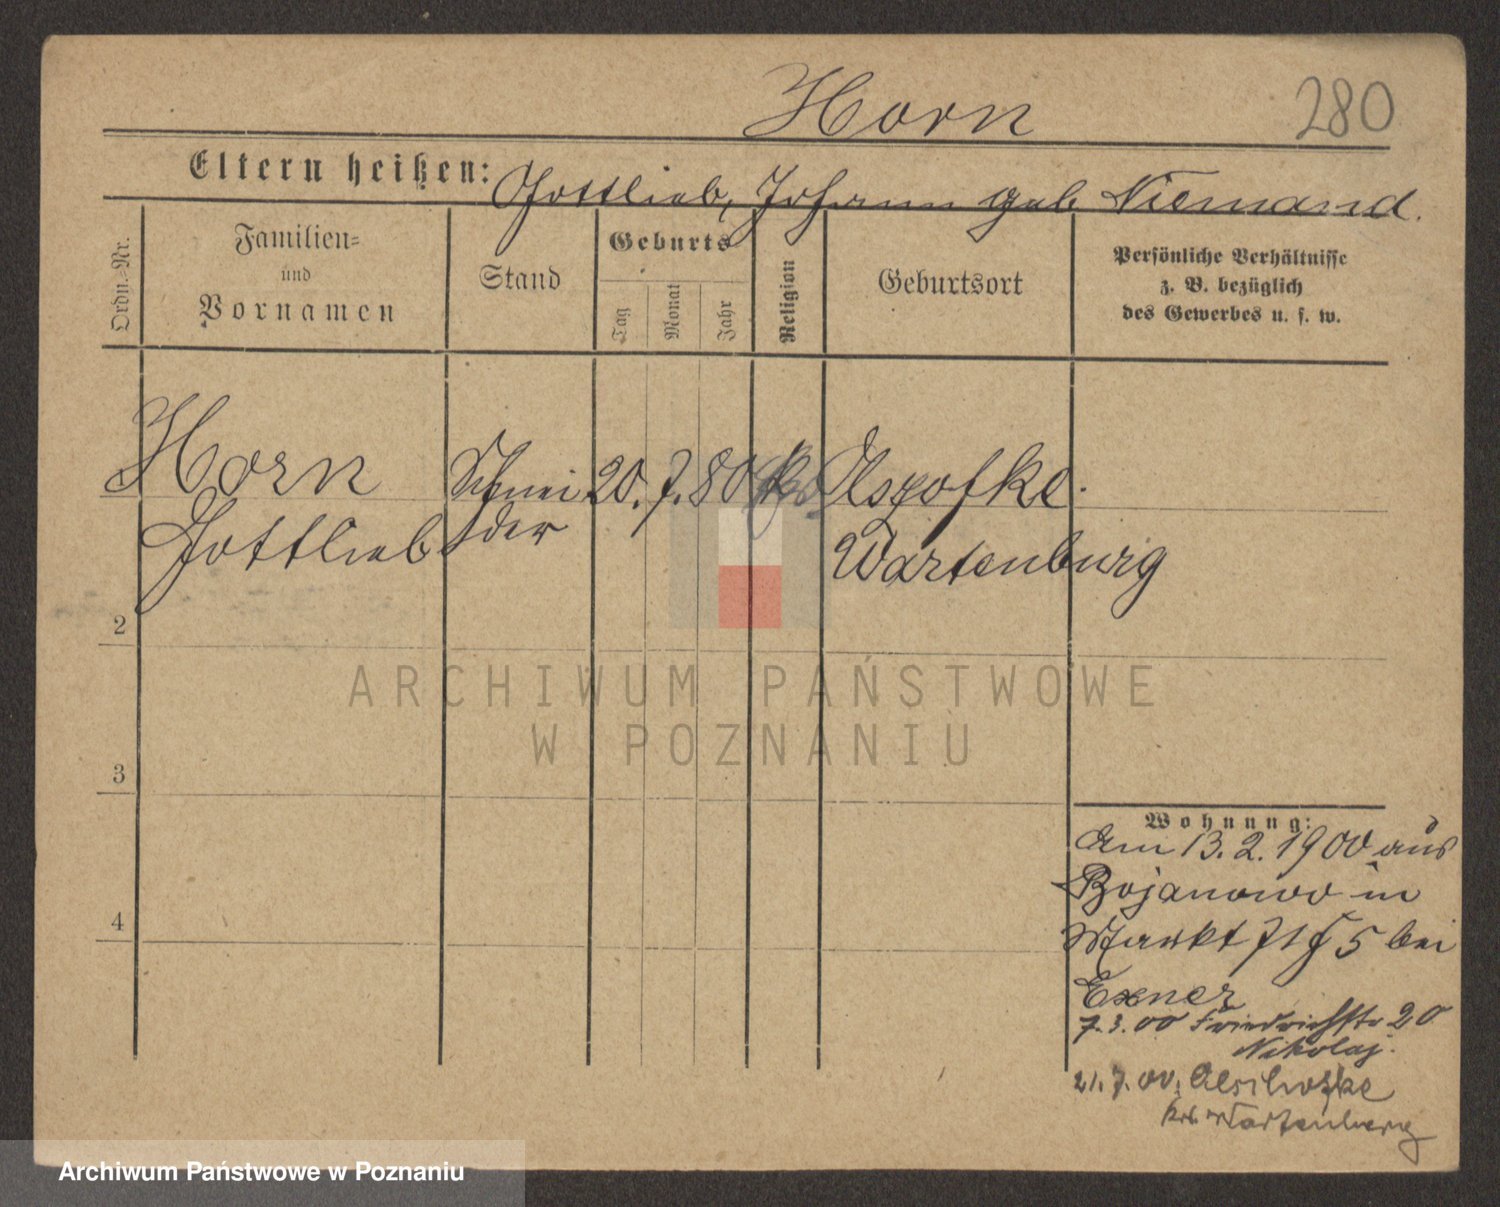 Horn
280
Eltern heißen: Gottlieb, Johann geb Niemand.
Ordn.-Nr.
Familien-
und
Vornamen
Stand
Geburts
Tag
Monat
Jahr
Religion
Geburtsort
Persönliche Verhältnisse
z. B. bezüglich
des Gewerbes u. s. w.
Horn Schnei 20. 7. 80
Gottlieb der Wartenburg
2
3
4
ARCHIWUM PAŃSTWOWE
W POZNANIU
Wohnung:
Am 13. 2. 1900 aus
Bojanowo in
Markt 71 bei
Exner
7. 3. 00 Friedrichstr 20
Nikolaj.
21. 7. 00.
Wartenberg
Archiwum Państwowe w Poznaniu